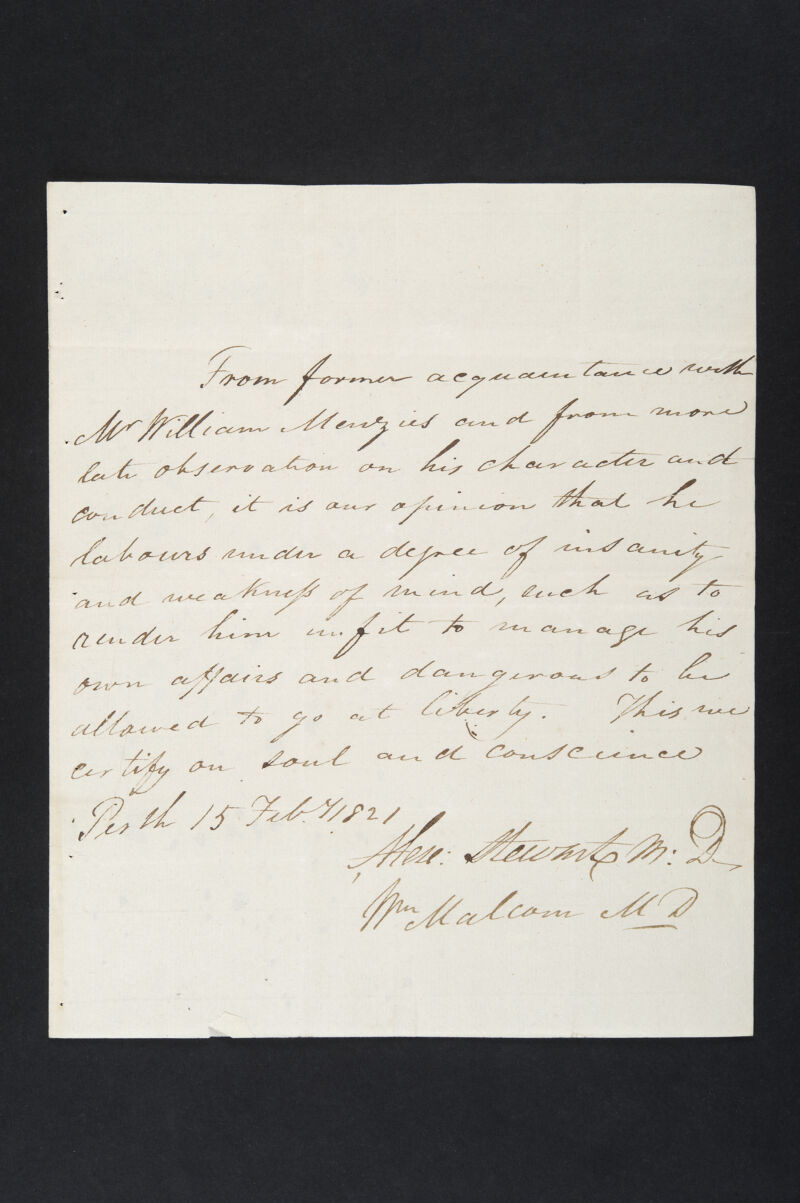 From former acquaintance with
Mr William Menzies and from more
late observation on his character and
conduct, it is our opinion that he
labours under a degree of insanity
and weakneſs of mind, such as to
render him unfit to manage his
own affairs and dangerous to be
allowed to go at liberty. This we
certify on soul and conscience
Perth 15 Feby 1821
Alexr: Stewart M: D
Wm Malcom M D